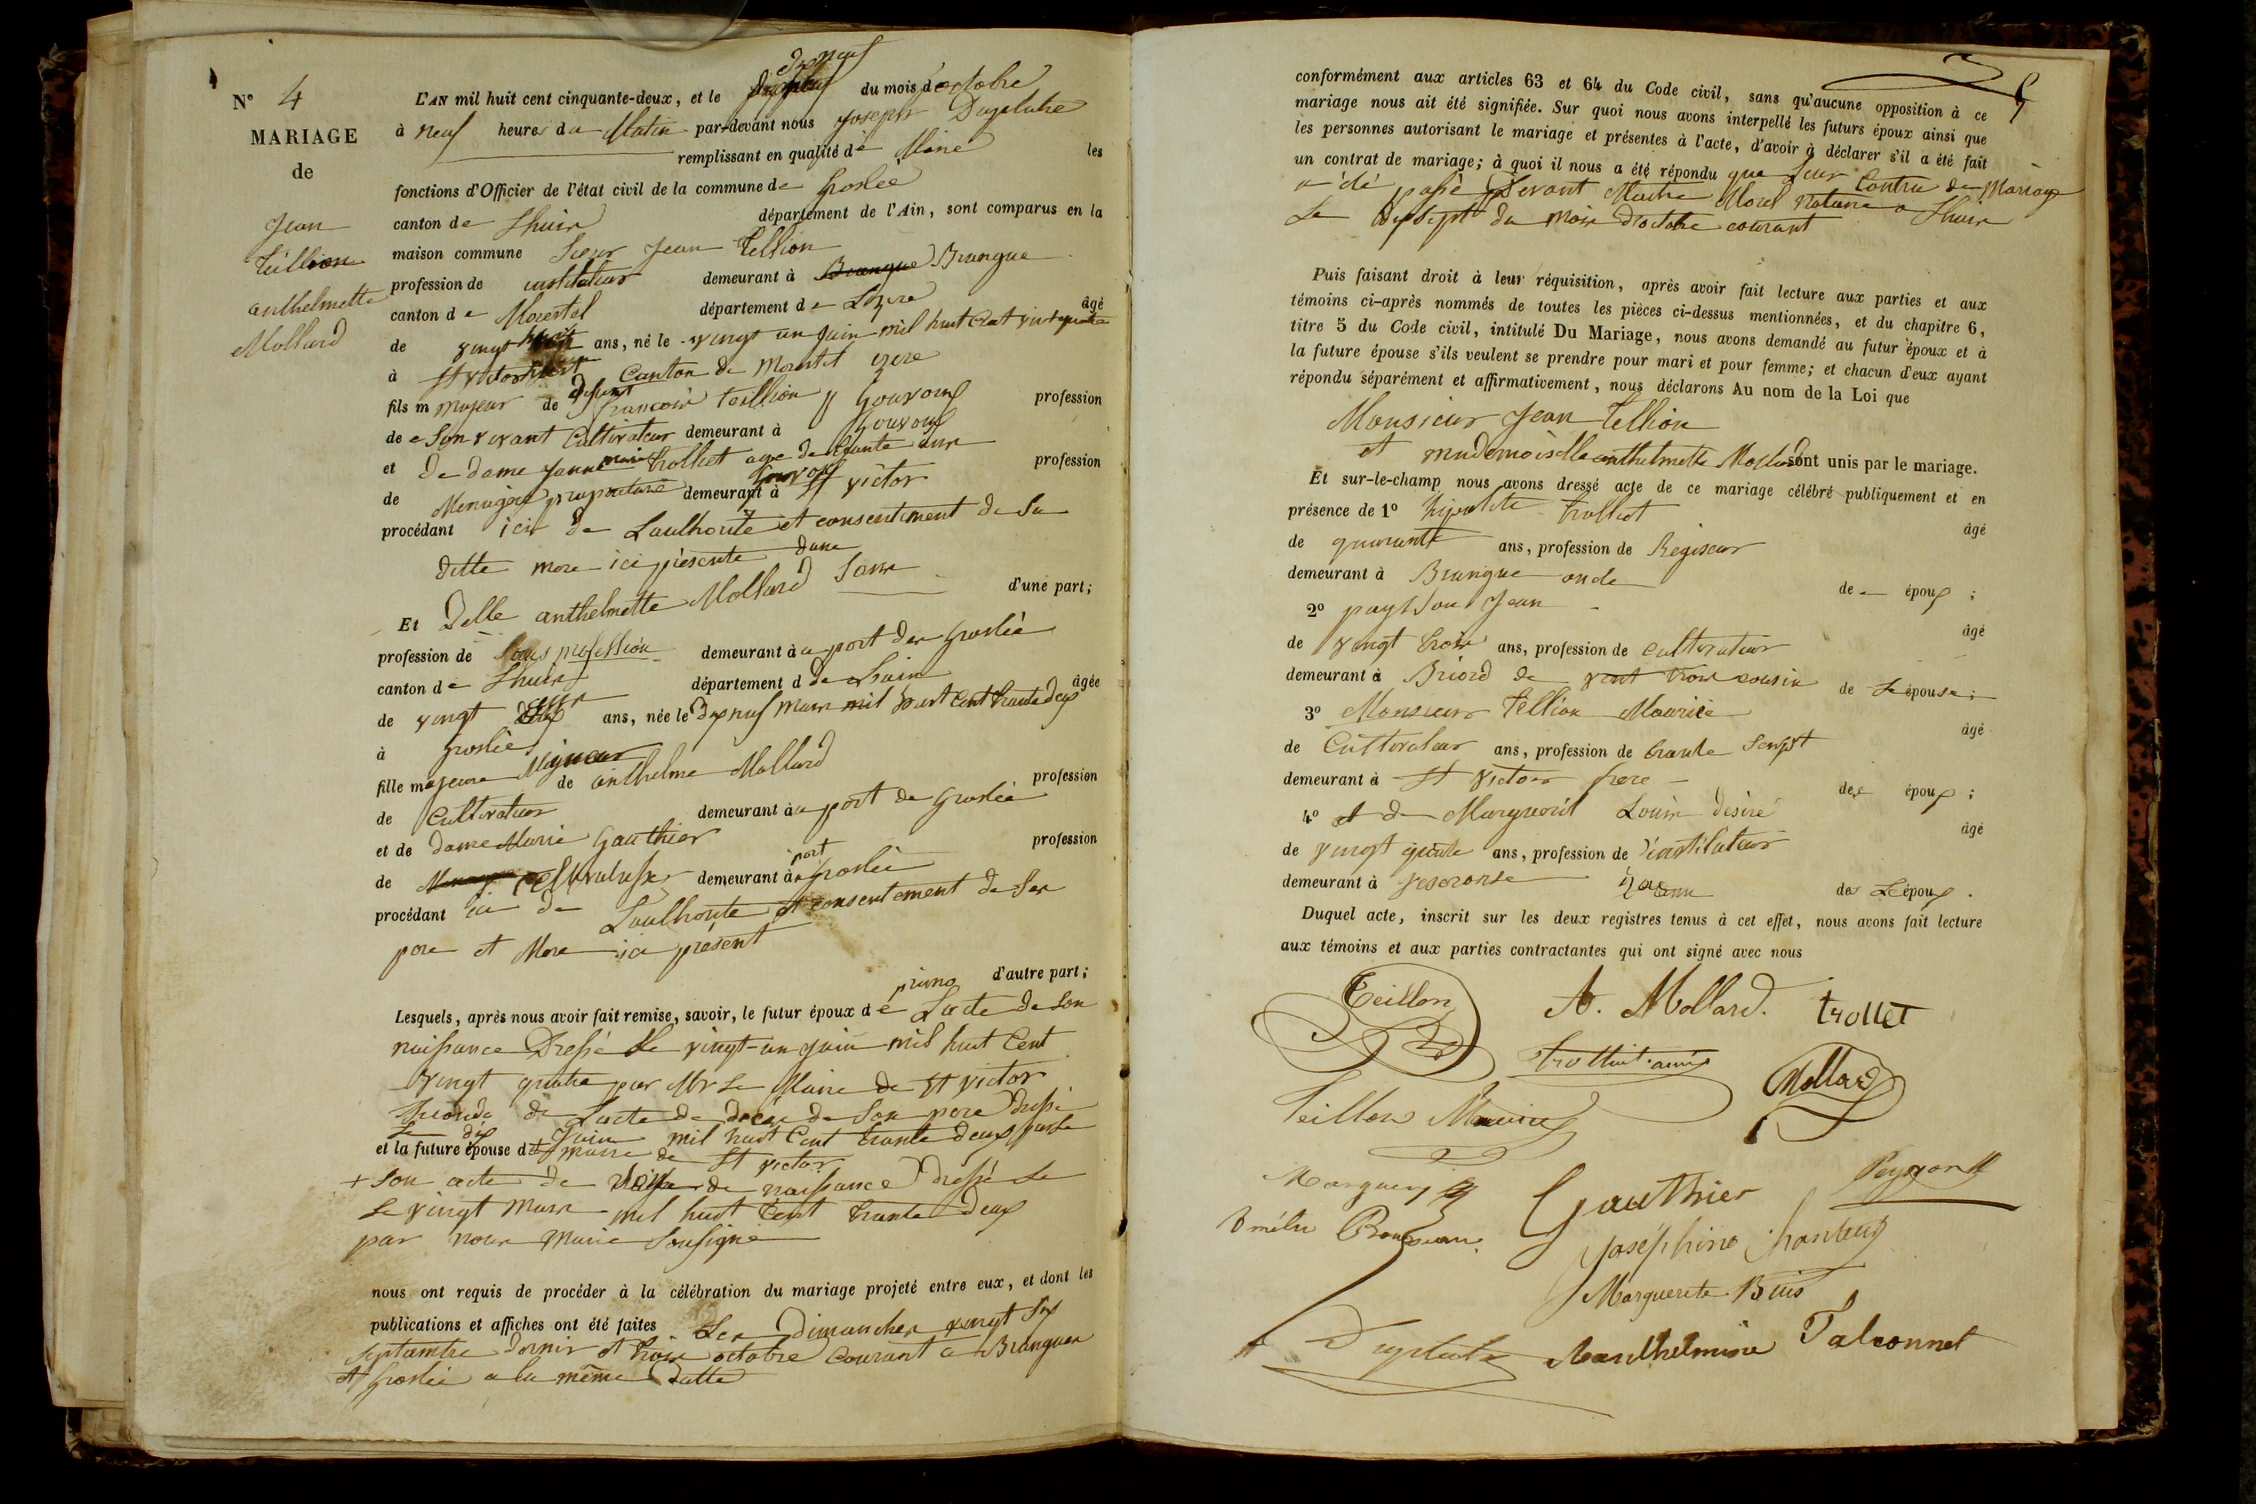 N° 4
MARIAGE
de
Jean
Teillion
anthelmette
Mollard
dix neuf
L'AN mil huit cent cinquante-deux, et le du mois d'octobre
à neuf heures du Matin par-devant nous joseph Duplatre
remplissant en qualité de Maire les
fonctions d'Officier de l'état civil de la commune de Groslée
canton de Lhuis département de l'Ain, sont comparus en la
maison commune Sieur Jean Tellion
profession de instituteur demeurant à Brangue Brangue
canton de Morestel département de Lizere âgé
de vingt huit ans, né le vingt un juin mil huit Cent vingt quatre
à St victor Canton de Morestel izere
fils m majeur de defunt francois teillion Gouvoux profession
de e Son vivant Cultivateur demeurant à Gouvoux
et de dame Janne marie trolliet agé de
de Menagere propriétaire demeurant à Gouvoux St victor profession
procédant icis de Laulhorité et consentiment de Sa
ditte mere ici présente dune
Et Delle anthelmette Mollard Sans d'une part;
profession de Sans profession demeurant à a port de Groslée
canton de Lhuis département d de Lain
de vingt ans, née le dix neuf Mars mil huit Cent trante deux âgée
à Groslée
fille majeure Migneur de anthelme Mollard
de Cultivateur demeurant à a port de Groslée profession
et de dame Marie Gauthier
de Cultivatrisse demeurant à port Groslée profession
procédant ici de Laulhorité et consentement de Ses
pere et Mere ici présent
d'autre part;
Lesquels, après nous avoir fait remise, savoir, le futur époux de primo Lacte de Son
naissance Dressé Le vingt-un juin mil huit Cent
vingt quatre par Mr Le Maire de St victor
Secondo de Lacte de décés de Son pere dressé
Le dix Juin mil huit Cent trante deux par Le
et la future épouse d + maire de St victor
+ Son acte de naissance dressé Le
Le vingt Mars mil huit Cent trante deux
par nous Maire Sousigné
nous ont requis de procéder à la célébration du mariage projeté entre eux, et dont les
publications et affiches ont été faites Les Dimanches vingt Six
Septambre dernir et trois octobre Courant a Brangues
et Groslée a la même Datte
5
conformément aux articles 63 et 64 du Code civil, sans qu'aucune opposition à ce
mariage nous ait été signifiée. Sur quoi nous avons interpellé les futurs époux ainsi que
les personnes autorisant le mariage et présentes à l'acte, d'avoir à déclarer s'il a été fait
un contrat de mariage; à quoi il nous a été répondu que Leur Contra de Mariage
a été passé Devant Maitre Morel notaire a Lhuis
Le dix Sept du Mois d'octobre courant
Puis faisant droit à leur réquisition, après avoir fait lecture aux parties et aux
témoins ci-après nommés de toutes les pièces ci-dessus mentionnées, et du chapitre 6,
titre 5 du Code civil, intitulé Du Mariage, nous avons demandé au futur époux et à
la future épouse s'ils veulent se prendre pour mari et pour femme; et chacun d'eux ayant
répondu séparément et affirmativement, nous déclarons Au nom de la Loi que
Monsieur Jean Tellion
et mademoiselle anthelmette Mollard sont unis par le mariage.
Et sur-le-champ nous avons dressé acte de ce mariage célébré publiquement et en
présence de 1° hipolite trolliet âgé
de quarante ans, profession de Regiseur
demeurant à Brangue oncle de époux;
2° Jean âgé
de vingt trois ans, profession de cultivateur
demeurant à Briord de cousin de Lépouse;
3° Monsieur Tellion Maurice âgé
de Cultivateur ans, profession de trante Sempt
demeurant à St victor frere de époux;
4° et de Marguerit Louis désiré âgé
de vingt quatre ans, profession de instituteur
demeurant à veseronse izere de Lépoux.
Duquel acte, inscrit sur les deux registres tenus à cet effet, nous avons fait lecture
aux témoins et aux parties contractantes qui ont signé avec nous
Teillon A. Mollard. trollet
Mollard
Teillon Maurice
Gauthier
Joséphine
Marguerite Buis
Duplatre Anthelmine Falconnet